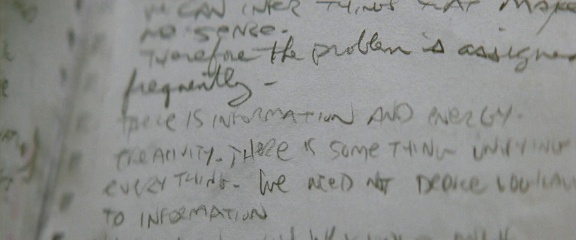 WE CAN INFER THINGS THAT MAKE
NO SENSE.
Therefore the problem is assigned
frequently -
THERE IS INFORMATION AND ENERGY.
CREATIVITY. THERE IS SOME THING UNIFYING
EVERY THING. WE NEED NOT
TO INFORMATION